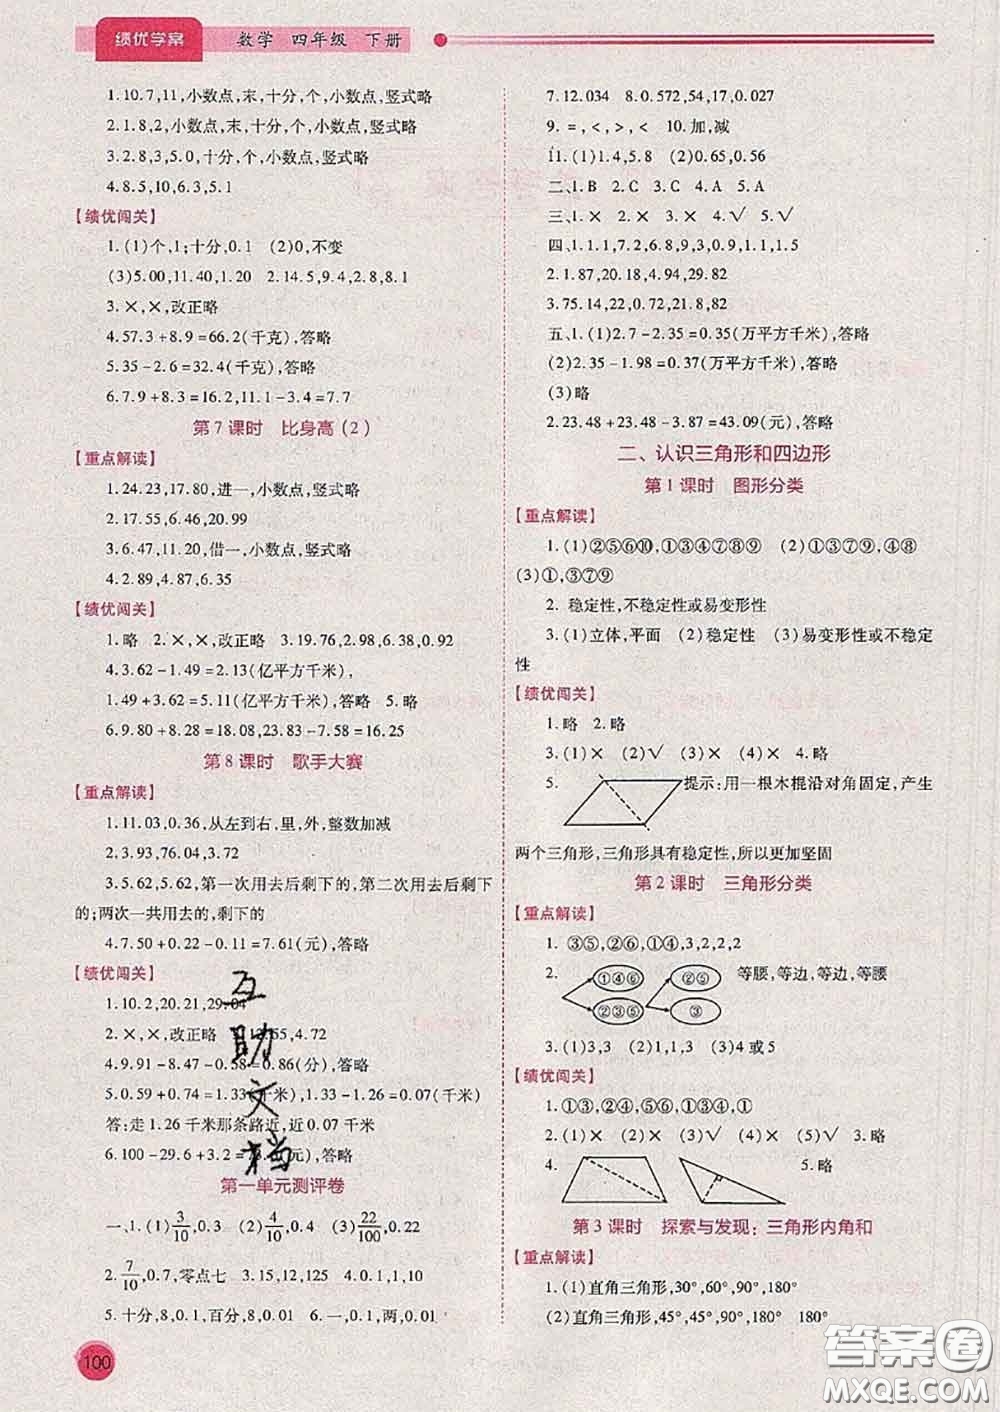 绩优学案 数学 四年级 下册
1.10.7,11,小数点,末,十分,个,小数点,竖式略
2.1.8,2,小数点,末,十分,个,小数点,竖式略
3.2.8,3,5.0,十分,个,小数点,竖式略
4.8.5,10,6.3,5.1
【绩优闯关】
1.(1)个,1;十分,0.1 (2)0,不变
(3)5.00,11.40,1.20 2.14.5,9.4,2.8,8.1
3.×,×,改正略
4.57.3+8.9=66.2(千克),答略
5.35-2.6=32.4(千克),答略
6.7.9+8.3=16.2,11.1-3.4=7.7
第7课时 比身高(2)
【重点解读】
1.24.23,17.80,进一,小数点,竖式略
2.17.55,6.46,20.99
3.6.47,11.20,借一,小数点,竖式略
4.2.89,4.87,6.35
【绩优闯关】
1.略 2.×,×,改正略 3.19.76,2.98,6.38,0.92
4.3.62-1.49=2.13(亿平方千米),
1.49+3.62=5.11(亿平方千米),答略 5.略
6.9.80+8.28=18.08,23.83-7.58=16.25
第8课时 歌手大赛
【重点解读】
1.11.03,0.36,从左到右,里,外,整数加减
2.3.93,76.04,3.72
3.5.62,5.62,第一次用去后剩下的,第二次用去后剩下
的;两次一共用去的,剩下的
4.7.50+0.22-0.11=7.61(元),答略
【绩优闯关】
1.10.2,20.21,29.04
2.×,×,改正略 ,4.72
4.9.91-8.47-0.58=0.86(分),答略
5.0.59+0.74=1.33(千米),1.33-1.26=0.07(千米)
答:走1.26千米那条路近,近0.07千米
6.100-29.6+3.2= (元),答略
互助文档
第一单元测评卷
一、1.(1)3/10,0.3 (2)4/10,0.4 (3)22/100,0.22
2.7/10,0.7,零点七 3.15,12,125 4.0.38
5.十分,8,0.1,百分,8,0.01 6.一,0.1,两,0.01
100
7.12.034 8.0.572,54,17,0.027
9.=,<,>,< 10.加,减
11.(1)1.4,5.8 (2)0.65,0.56
二、1.B 2.C 3.C 4.A 5.A
三、1.× 2.× 3.× 4.√ 5.√
四、1.1.1,7.2,6.8,9,3,0.9,1.1,1.5
2.1.87,20.18,4.94,29.82
3.75.14,22,0.72,21.8,82
五、1.(1)2.7-2.35=0.35(万平方千米),答略
(2)2.35-1.98=0.37(万平方千米),答略
(3)略
2.23.48+23.48-3.87=43.09(元),答略
二、认识三角形和四边形
第1课时 图形分类
【重点解读】
1.(1)②⑤⑥⑩,①③④⑦⑧⑨ (2)①③⑦⑨,④⑧
(3)①,③⑦⑨
2. 稳定性,不稳定性或易变形性
3.(1)立体,平面 (2)稳定性 (3)易变形性或不稳定
性
【绩优闯关】
1.略 2.略
3.(1)× (2)√ (3)× (4)× 4.略
5. 提示:用一根木棍沿对角固定,产生
两个三角形,三角形具有稳定性,所以更加坚固
第2课时 三角形分类
【重点解读】
1. ③⑤,②⑥,①④,3,2,2,2
2. ①④⑥ ②⑤ 等腰,等边,等边,等腰
②③⑤ ③
3.(1)3,3 (2)1,3,4 (3)4或5
【绩优闯关】
1.①③,②⑤,④⑥,③④,①
2.(1)× (2)× (3)√ (4)× (5)√ 3.略
4. 5.略
第3课时 探索与发现:三角形内角和
【重点解读】
1.(1)直角三角形,30°,60°,90°,180°
(2)直角三角形,45°,45°,90°,180° 180°
答案圈
MXQE.COM